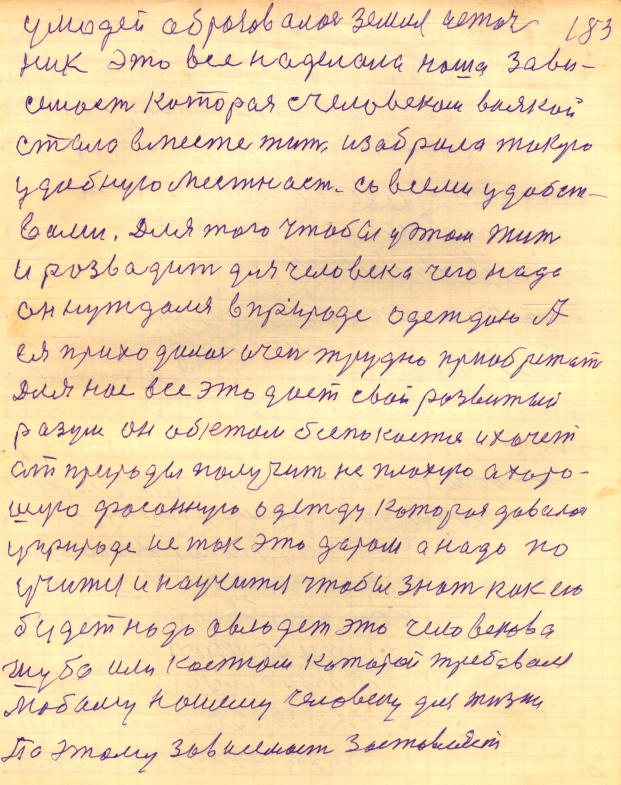 у людей оброзовалося земля источ 183
ник это все наделала ноша зави-
семост которая с человеком всякой
стало вместе жит, избрала такую
удобную местност. со всеми удобст-
вами. Для того чтобы у этом жит
и розвадит для человека чего нада
он нуждался в природе одеждою А
ея приходилося очен трудно приобретат
Для нас все это дает свой розвитый
разум он об етом беспокоется и хочет
от природы получит не плохую а хоро-
шую фасонную одежду которая давалося
у природе не так это даром а надо по
учится и научится чтобы знат как ею
будет надо овлодет это человекова
шуба или костюм которой требовался
любому нашему человеку для жизни
По этому зависемост зостовляет